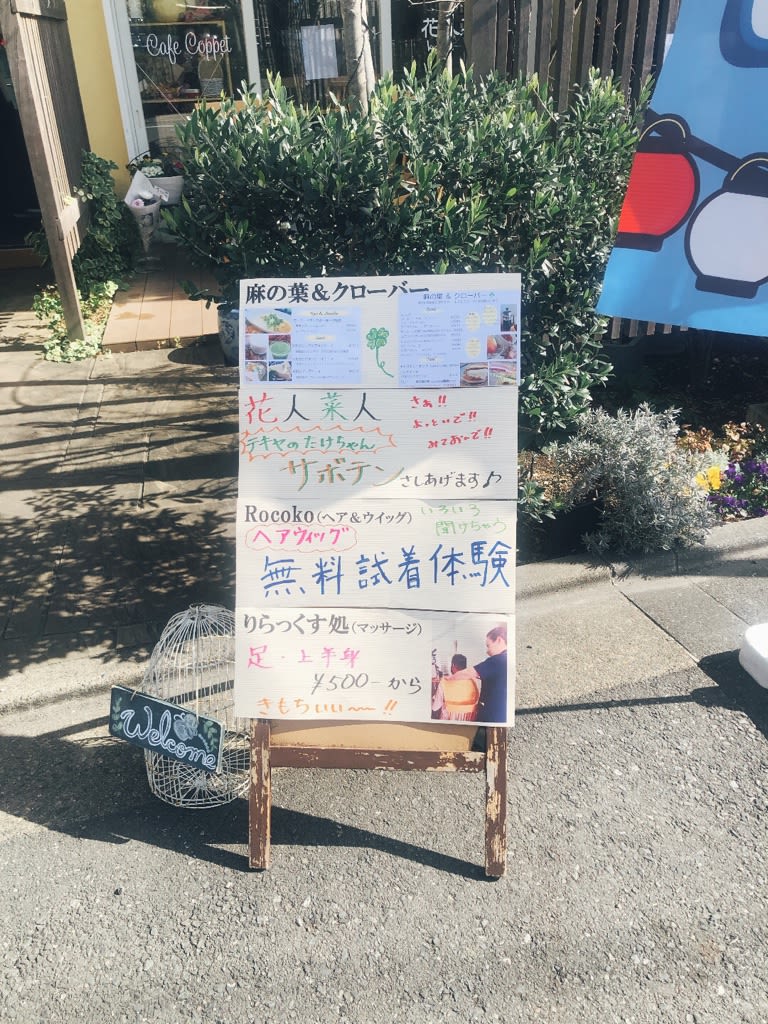 Cafe Coppet
花人
麻の葉&クローバー
麻の葉 & クローバー
花人菜人
さぁ!!
よっといで!!
みておいで!!
テキヤのたけちゃん
サボテン
さしあげます♪
Rocoko(ヘア&ウイッグ)
いろいろ
聞けちゃう
ヘアウィッグ
無料試着体験
りらっくす処(マッサージ)
足・上半身
¥500-から
きもちいい〜!!
Welcome